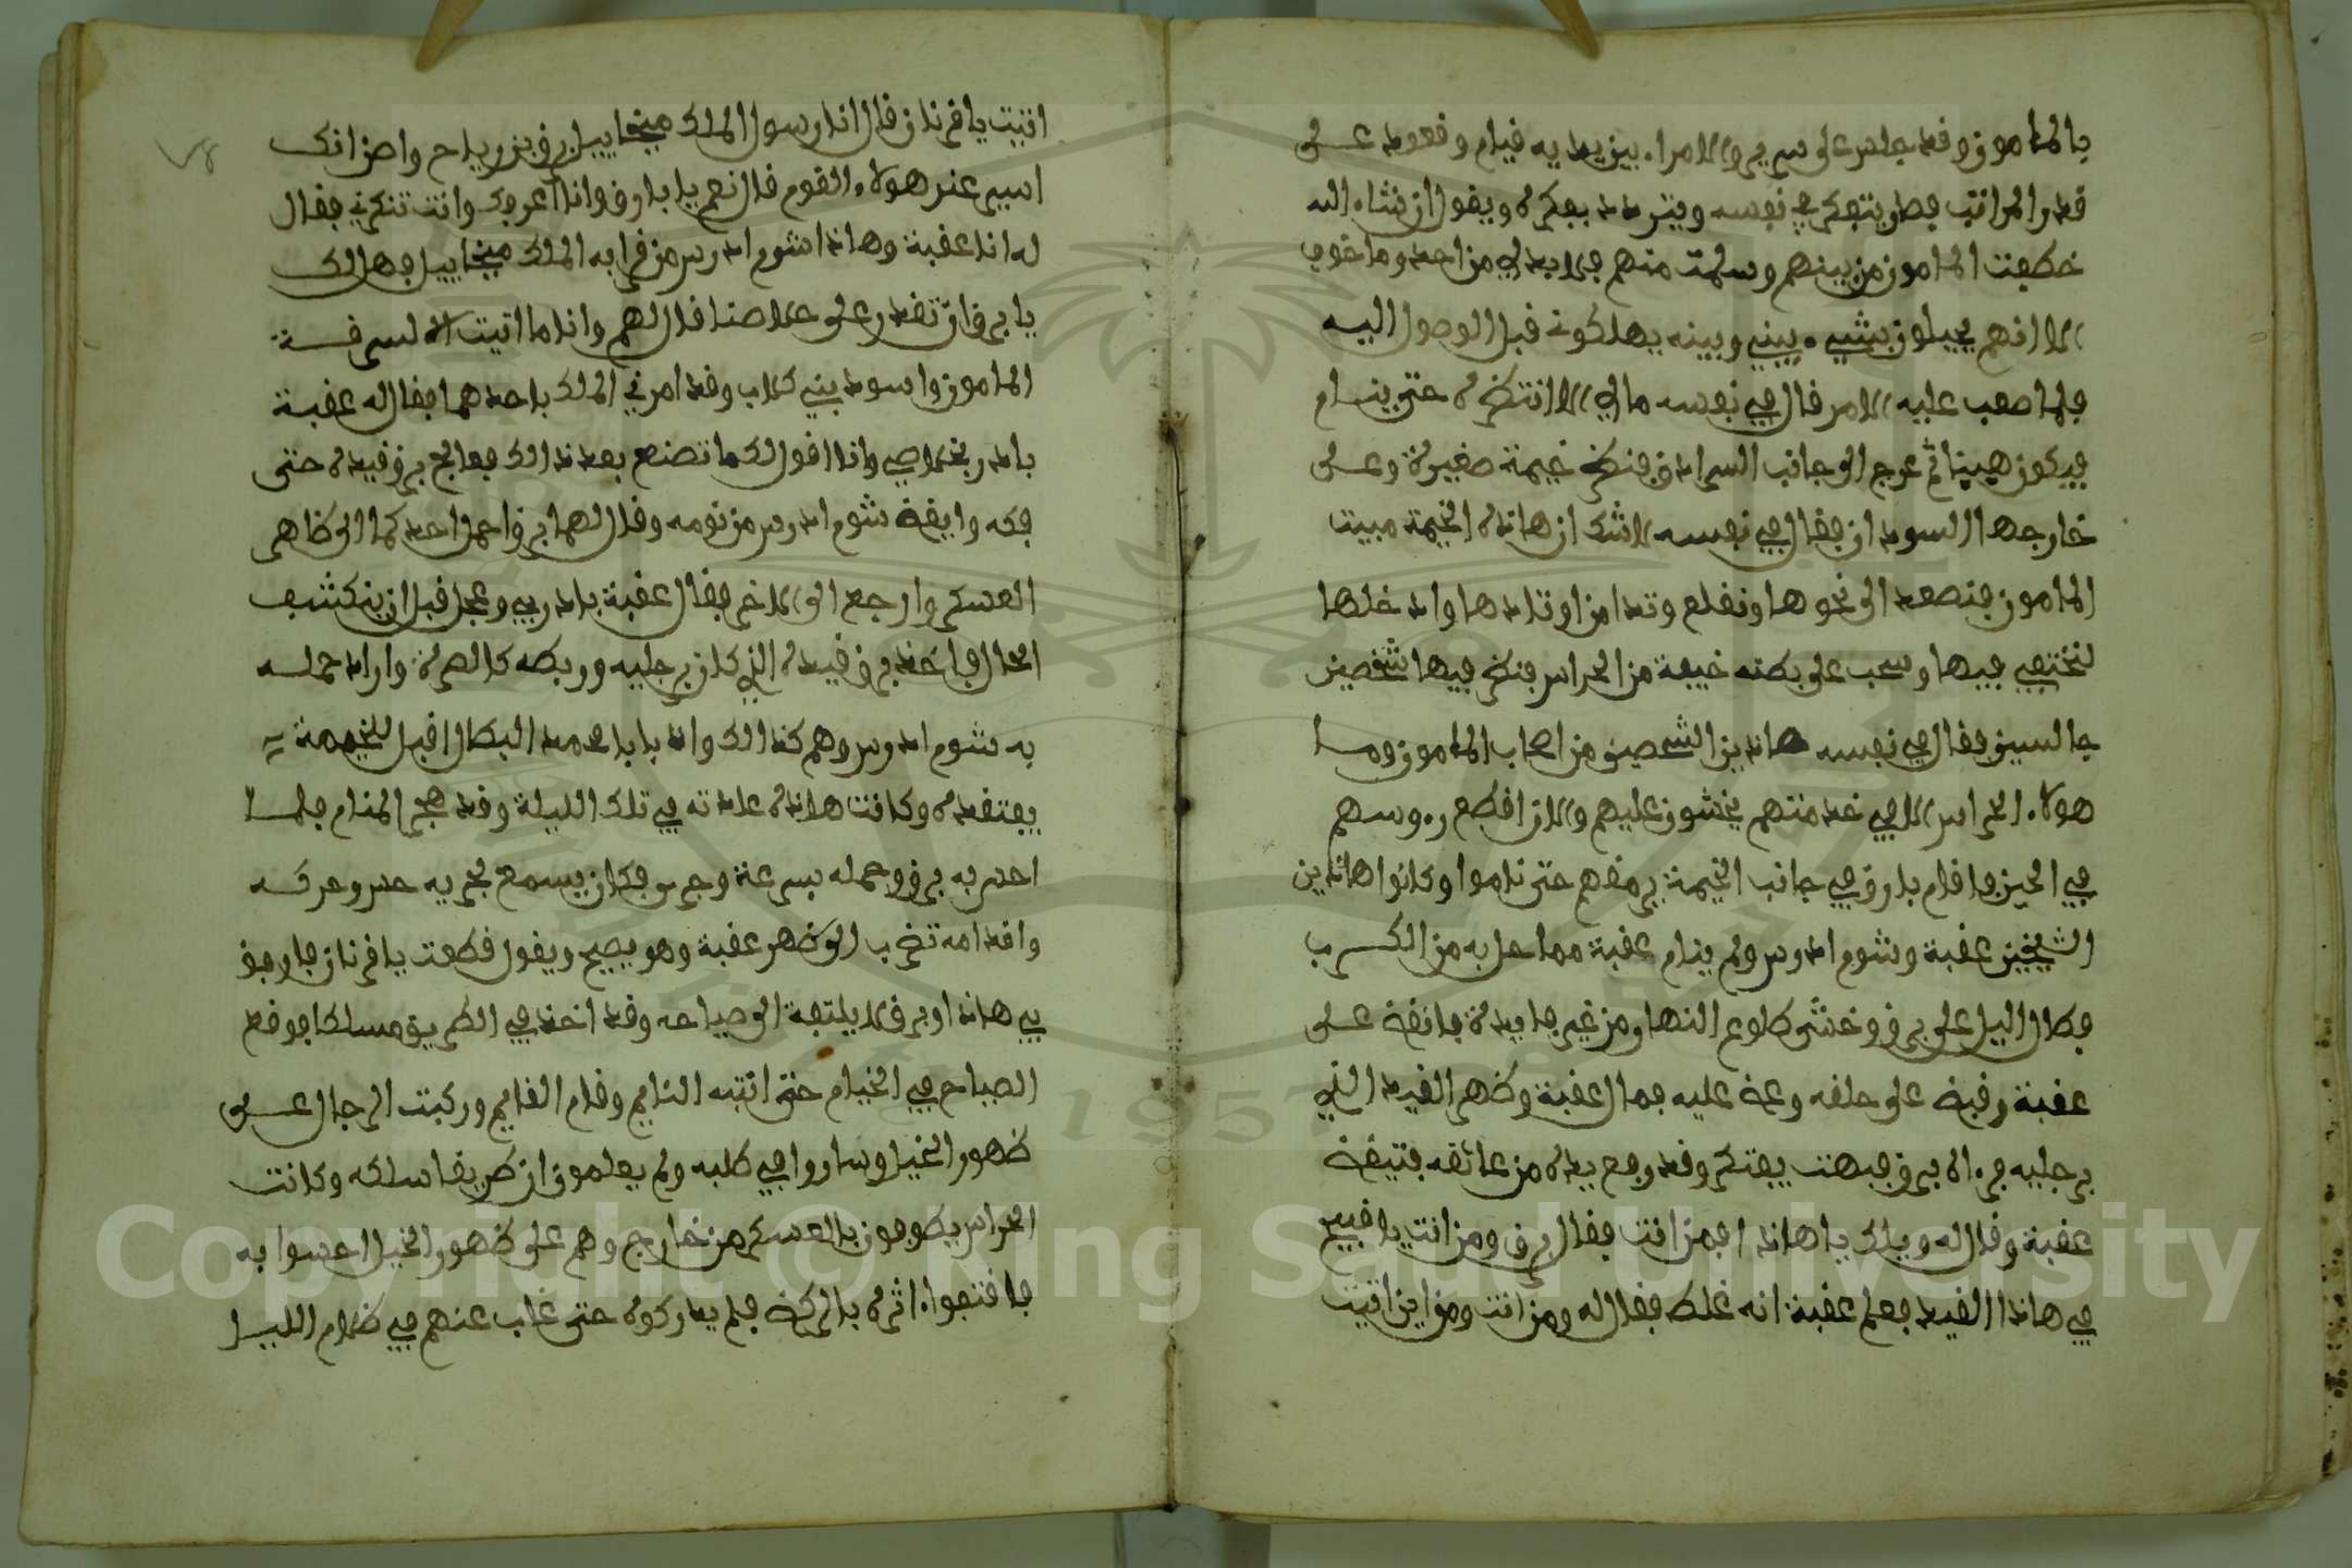 بالمامون وقد جلس على سرير والامراء بين يديه قيام وقعود على
قدر المراتب فصار يتفكر في نفسه ويتردد بفكره ويقول ان شاء الله
خطفت المامون من بينهم وسلمت منهم فلا بد لي من احد وما خوفي
الا انهم يحيلون بيني وبينه يهلكوني قبل الوصول اليه
فلما صعب عليه الامر قال في نفسه مالي الا انتظره حتى ينام
فيكون هينا ثم عرج الى جانب السرادق فنظر خيمة صغيرة وعلى
خارجها السودان فقال في نفسه لا شك ان هاذه الخيمة مبيت
المامون فنصعد الى نحوها ونقلع وتدا من اوتادها وادخلها
لنختفي فيها وسحب على بطنه خيفة من الحراس فنظر فيها شخصين
جالسين فقال في نفسه هاذين الشخصين من اصحاب المامون وما
هولاء الحراس الا في خدمتهم يخشون عليهم والان اقطع رءوسهم
في الحين فاقام بارق في جانب الخيمة يرمقهم حتى ناموا وكانوا هاذين
الشيخين عقبة وشوم ادرس ولم ينام عقبة مما حل به من الكرب
فطال اليل على برق وخشى طلوع النهار من غير فايدة فانقض على
عقبة وقبض على حلقه وعض عليه فمال عقبة وظهر القيد الذي
برجليه فرءاه برق فبهت يفتكر وقد رفع يده من عاتقه فتيقض
عقبة وقال له ويلك يا هاذا فمن انت فقال برق ومن انت يا قبيح
في هاذا القيد فعلم عقبة انه غلط فقال له ومن انت ومن اين اتيت
اتيت يا قرنان قال انا رسول الملك ميخاييل برق بن رياح واضن انك
اسير عند هولاء القوم قال نعم يا بارق وانا اعرفك وانت تنكرني فقال
له انا عقبة وهاذا شوم ادرس من قرابة الملك ميخاييل فهل لك
يا برق ان تقدر على خلاصنا قال لهم وانا ما اتيت الا لسرقة
المامون واسود بني كلاب وقد امرني الملك باحدهما فقال له عقبة
بادر بخلاصي وانا اقول لك ما تصنع بعد ذالك فعالج برق قيده حتى
فكه وايقض شوم ادرس من نومه وقال لهما برق احمل احدكما الى ظاهر
العسكر وارجع الى الاخر فقال عقبة بادر بي وعجل قبل ان ينكشف
الحال فاخذ برق قيده الذي كان برجليه وربطه كالصرة واراد حمله
به شوم ادرس وهم كذالك واذا بابا محمد البطال اقبل للخيمة
يفتقده وكانت هاذه عادته في تلك الليلة وقد هجر المنام فلما
احس به برق وحمله بسرعة وجرى فكان يسمع لجريه حس وحركه
واقدامه تضرب الى ظهر عقبة وهو يصيح ويقول قطعت يا قرنان فارفق
بي هاذا وبرق لا يلتفة الى صياحه وقد اخذ في الطريق مسلكا فوقع
الصياح في الخيام حتى انتبه النايم وقام القايم وركبت الرجال على
ظهور الخيل وساروا في طلبه ولم يعلمون ان طريقا سلكه وكانت
الحراس يطوفون بالعسكر من خارج وهم على ظهور الخيل احسوا به
فاقتفوا اثره بالركض فلم يدركوه حتى غاب عنهم في ظلام الليل